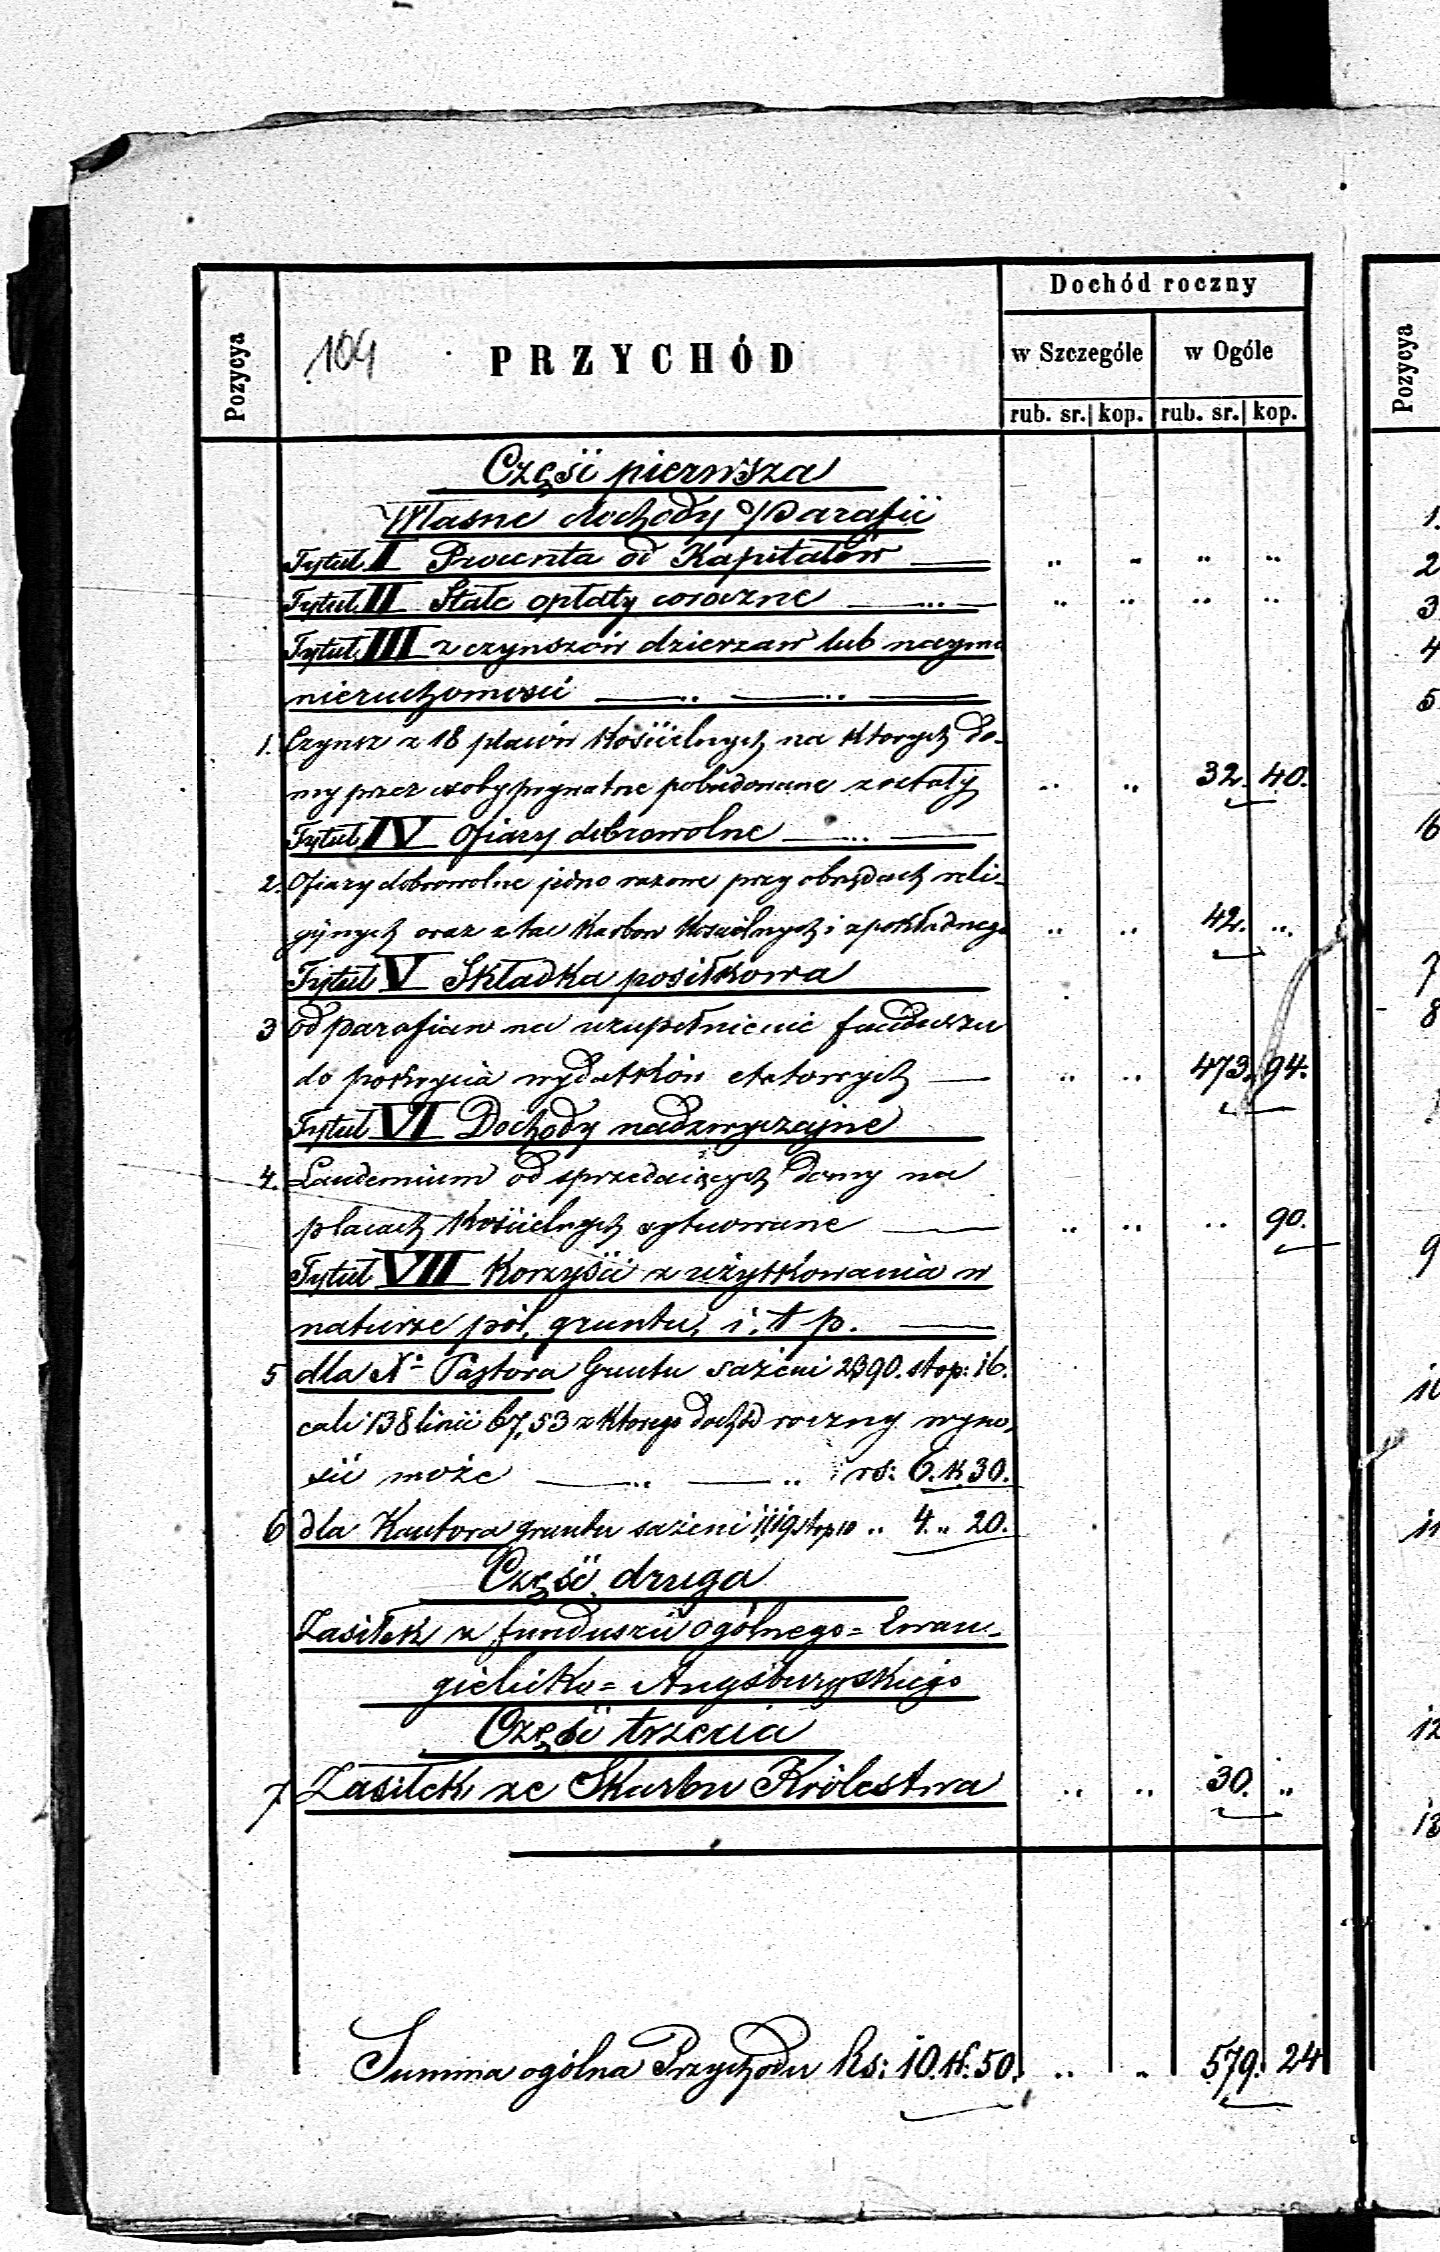 Dochód roczny
Pozycya
104
PRZYCHÓD
w Szczególe
w Ogóle
Pozycya
rub. sr. kop. rub. sr. kop.
Część pierwsza
Własne dochody Parafii
Tytuł I Procenta od Kapitałów — .. .. .. ..
Tytuł II Stałe opłaty coroczne — .. .. .. ..
Tytuł III z czynszów dzierzaw lub najmu
nieruchomości — .. — .. —
1. Czynsz z 18 placów Kościelnych na ktorych do-
my przez osoby prywatne pobudowane zostały .. .. 32. 40.
Tytuł IV Ofiary dobrowolne — .. —
2. Ofiary dobrowolne jedno razowe przy obrzędach reli-
gijnych oraz z tac Karbon Kościelnych i .. .. 42. ..
Tytuł V Składka posiłkowa
3 od parafian na uzupełnienie funduszu
do pokrycia wydatków etatowych — .. .. 473. 94.
Tytuł VI Dochody nadzwyczajne
4. Laudemium od sprzedaiących domy na
placach Kościelnych sytuowane — .. .. .. 90.
Tytuł VII Korzyści z użytkowania w
naturze pól, gruntu, i. t p. —
5 dla X. Pastora Gruntu sażeni 2390. stop: 16.
cali 138 linii 67,53 z ktorego dochód roczny wyno-
sić może — .. — .. rs: 6. k 30.
6 dla Kantora gruntu sażeni 1119 stop 10 .. 4. .. 20.
Część druga
Zasiłek z funduszu ogólnego = Ewan-
gielicko = Augsburgskiego
Część trzecia
7 Zasiłek ze Skarbu Królestwa .. .. 30. ..
Summa ogólna Przychodu Rs: 10. k. 50. .. .. 579. 24
1.
2
3
4
5
6
7
8
9
10
11
12
13